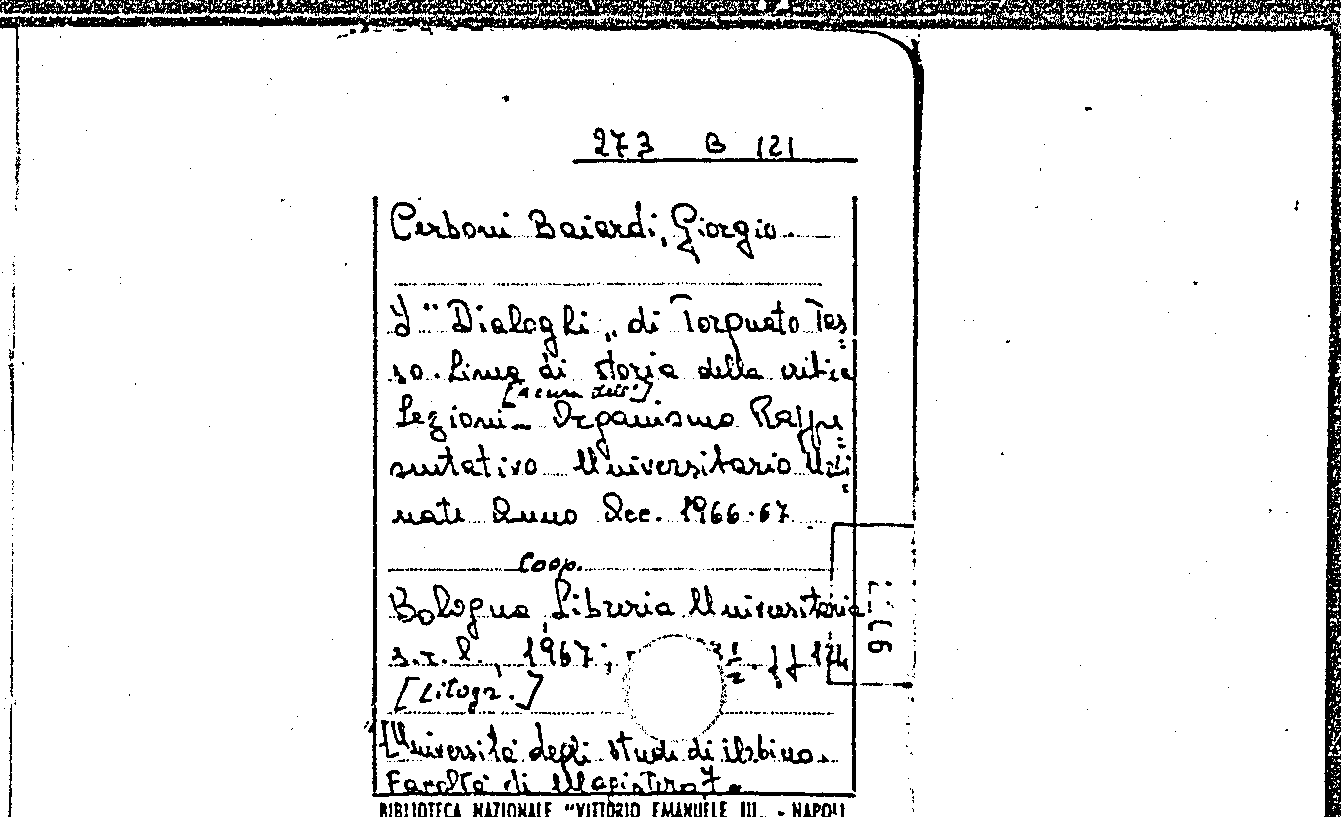 273 B 121
Cerboni Baiardi, Giorgio.
I "Dialoghi„ di Torquato Tas=
so. Linea di storia della critica
[a cura dell']
Lezioni - Organismo Rappre=
sentativo Universitario Urbi=
nate Anno Acc. 1966-67
Coop.
Bologna, Libreria Universitaria
s.r.l., 1967; ½. ff 124
[Litogr.]
[Università degli studi di Urbino.
Facoltà di Magistero].
BIBLIOTECA NAZIONALE "VITTORIO EMANUELE III„ - NAPOLI